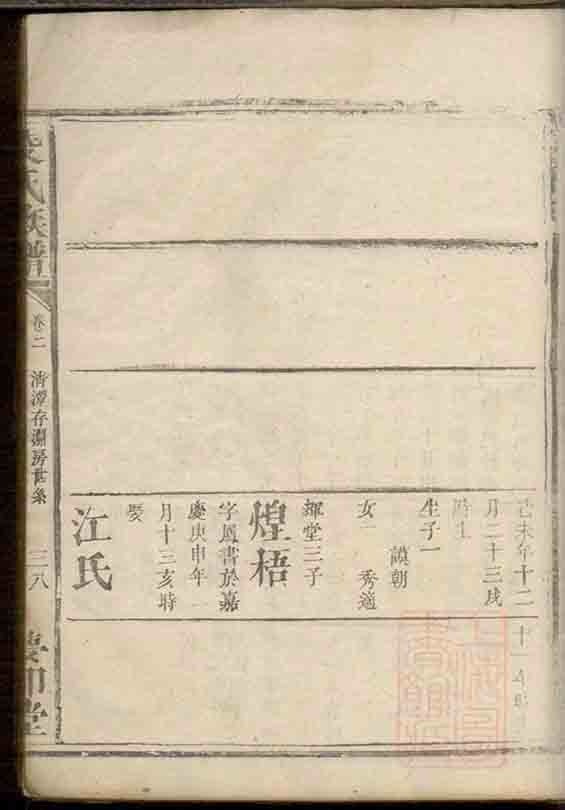 己未年十二
月二十三戌
時生
生子一
謨朝
女一 秀適
輝堂三子
煌梧
字鳳書於嘉
慶庚申年一
月十三亥時
娶
江氏
氏族譜
卷二
清潭存淵房世系
三八